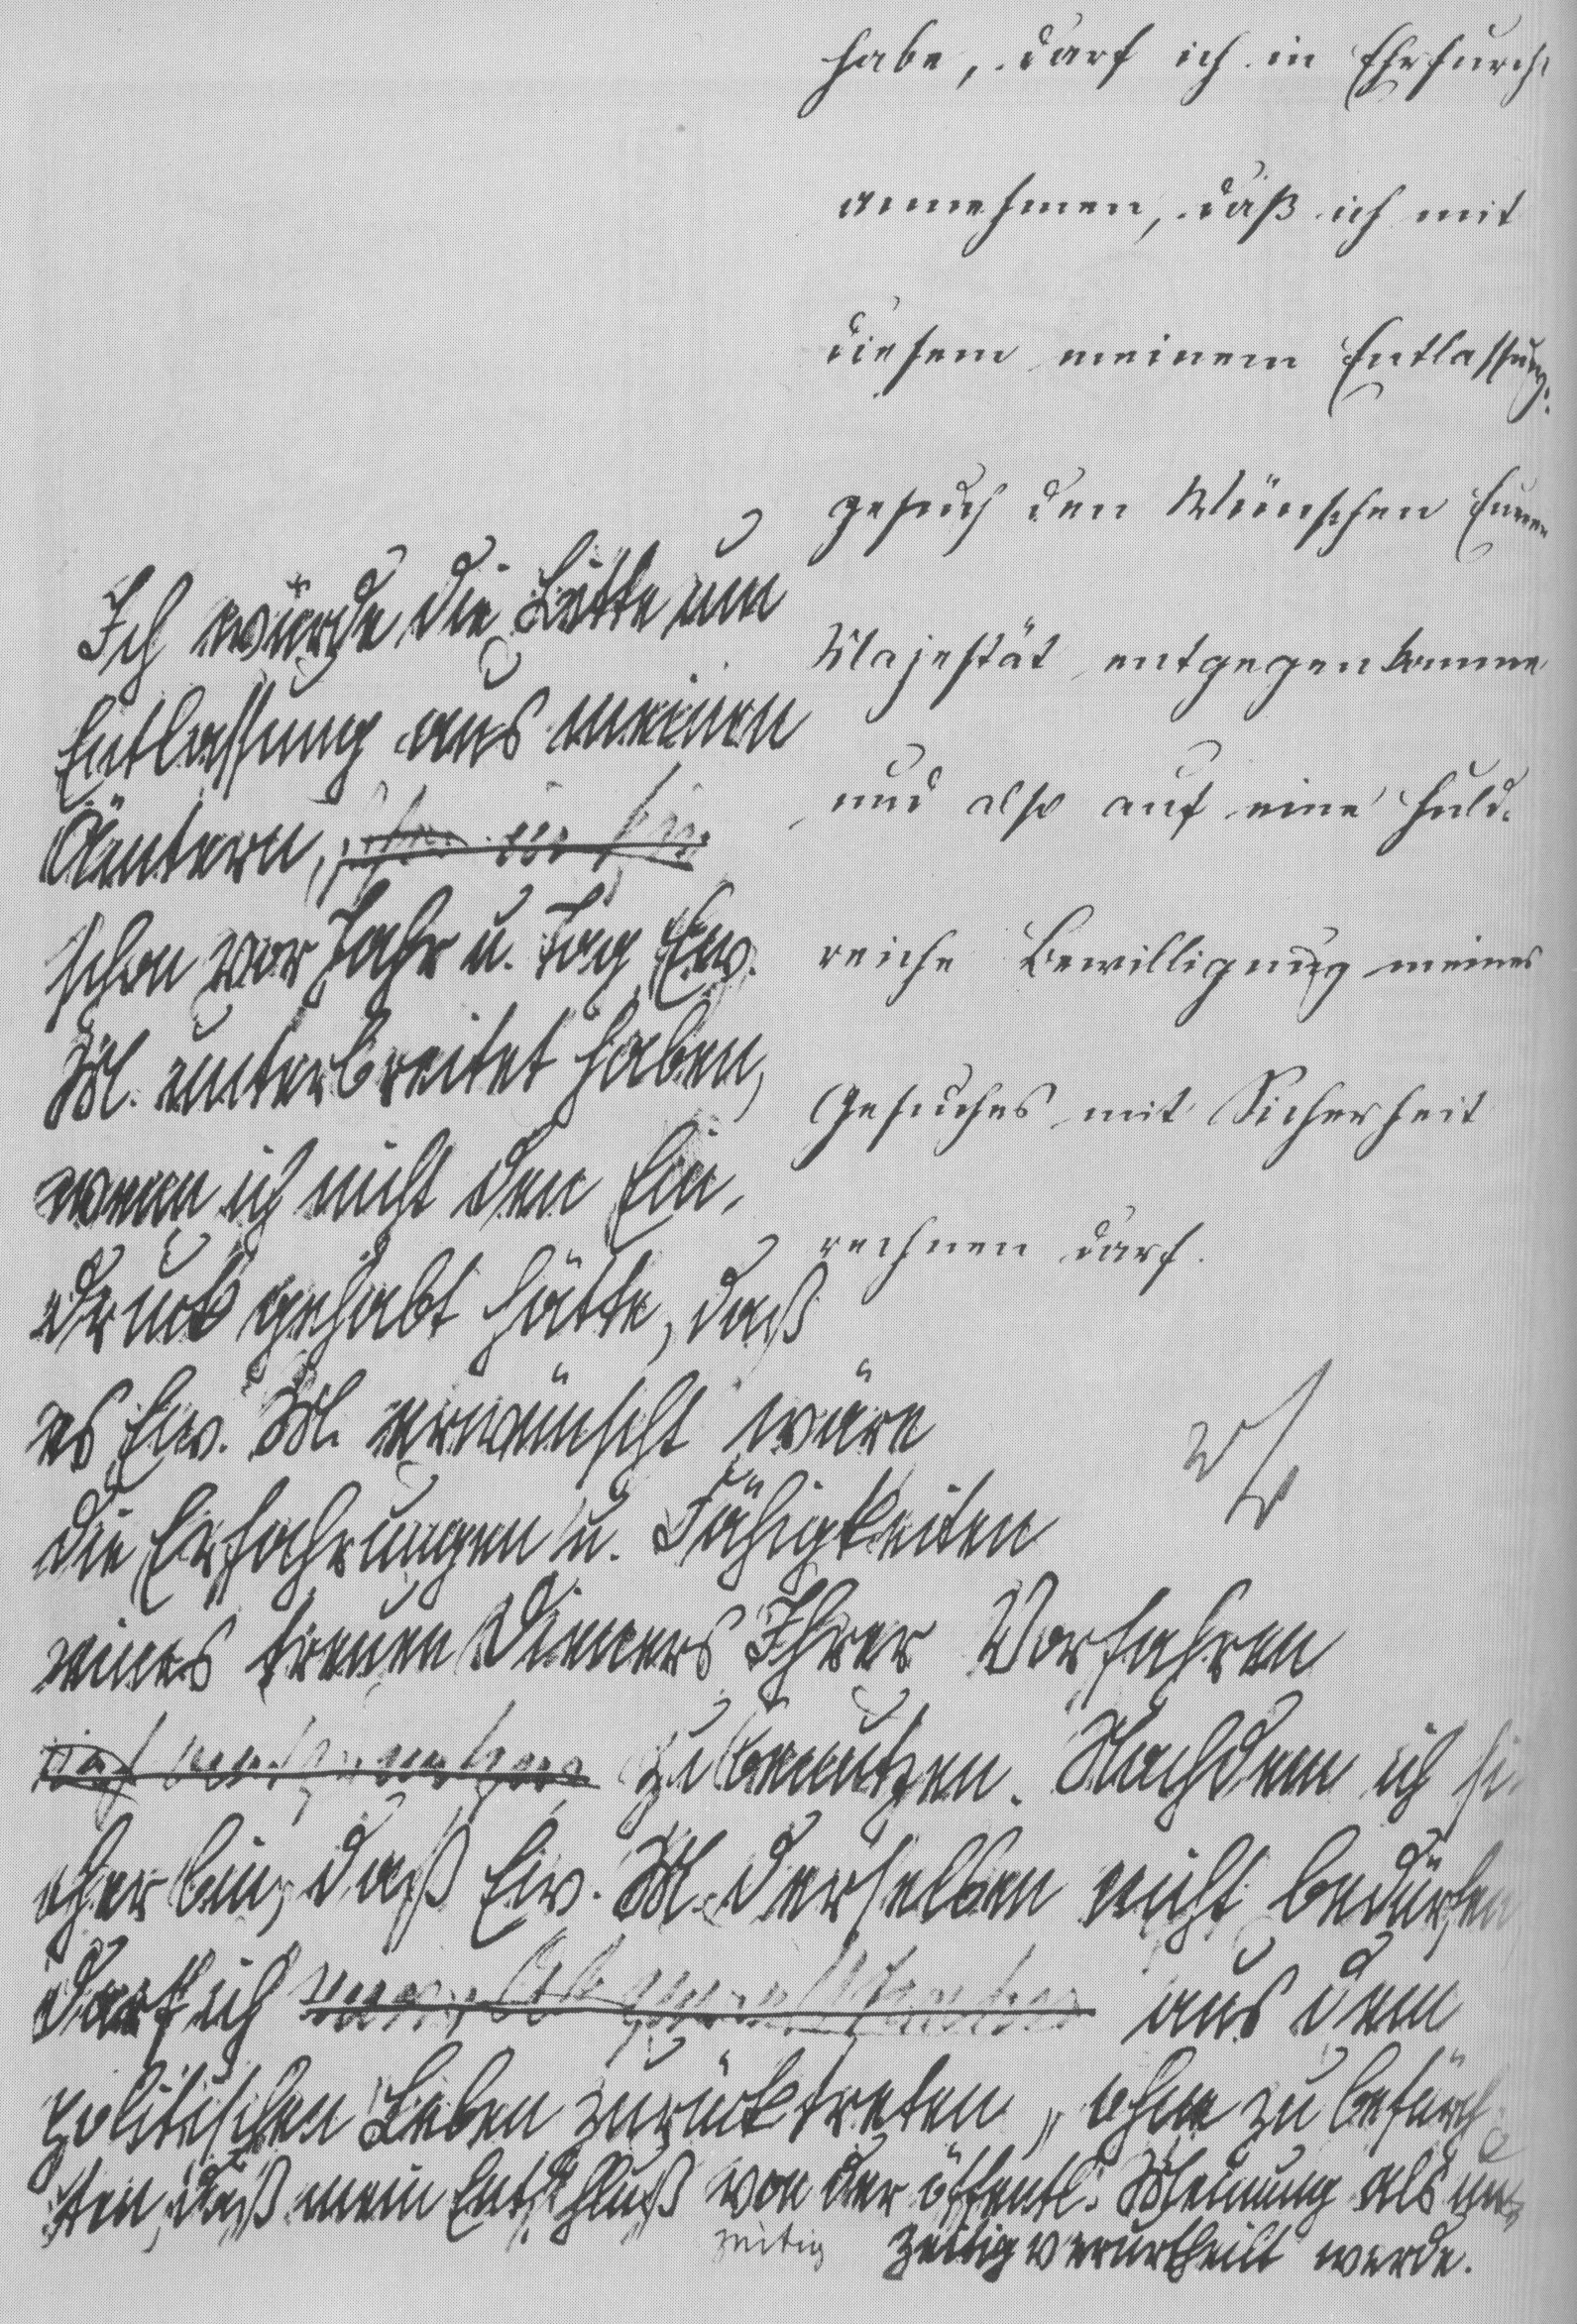 habe, darf ich in Ehrfurcht
annehmen, daß ich mit
diesem meinem Entlassungs-
gesuch den Wünschen Eurer
Majestät entgegenkomme
und also auf eine huld-
reiche Bewilligung meines
Gesuches mit Sicherheit
rechnen darf.
Ich würde die Bitte um
Entlassung aus meinen
Ämtern,
schon vor Jahr u. Tag Ew.
M. unterbreitet haben,
wenn ich nicht den Ein-
druck gehabt hätte, daß
es Ew. M. erwünscht wäre
die Erfahrungen u. Fähigkeiten
eines treuen Dieners Ihrer Vorfahren
zu benutzen. Nachdem ich si-
cher bin, daß Ew. M. derselben nicht bedürfen
darf ich aus dem
politischen Leben zurücktreten, ohne zu befürch-
ten, daß mein Entschluß von der öffentl. Meinung als un-
zeitig zeitig verurtheilt werde.